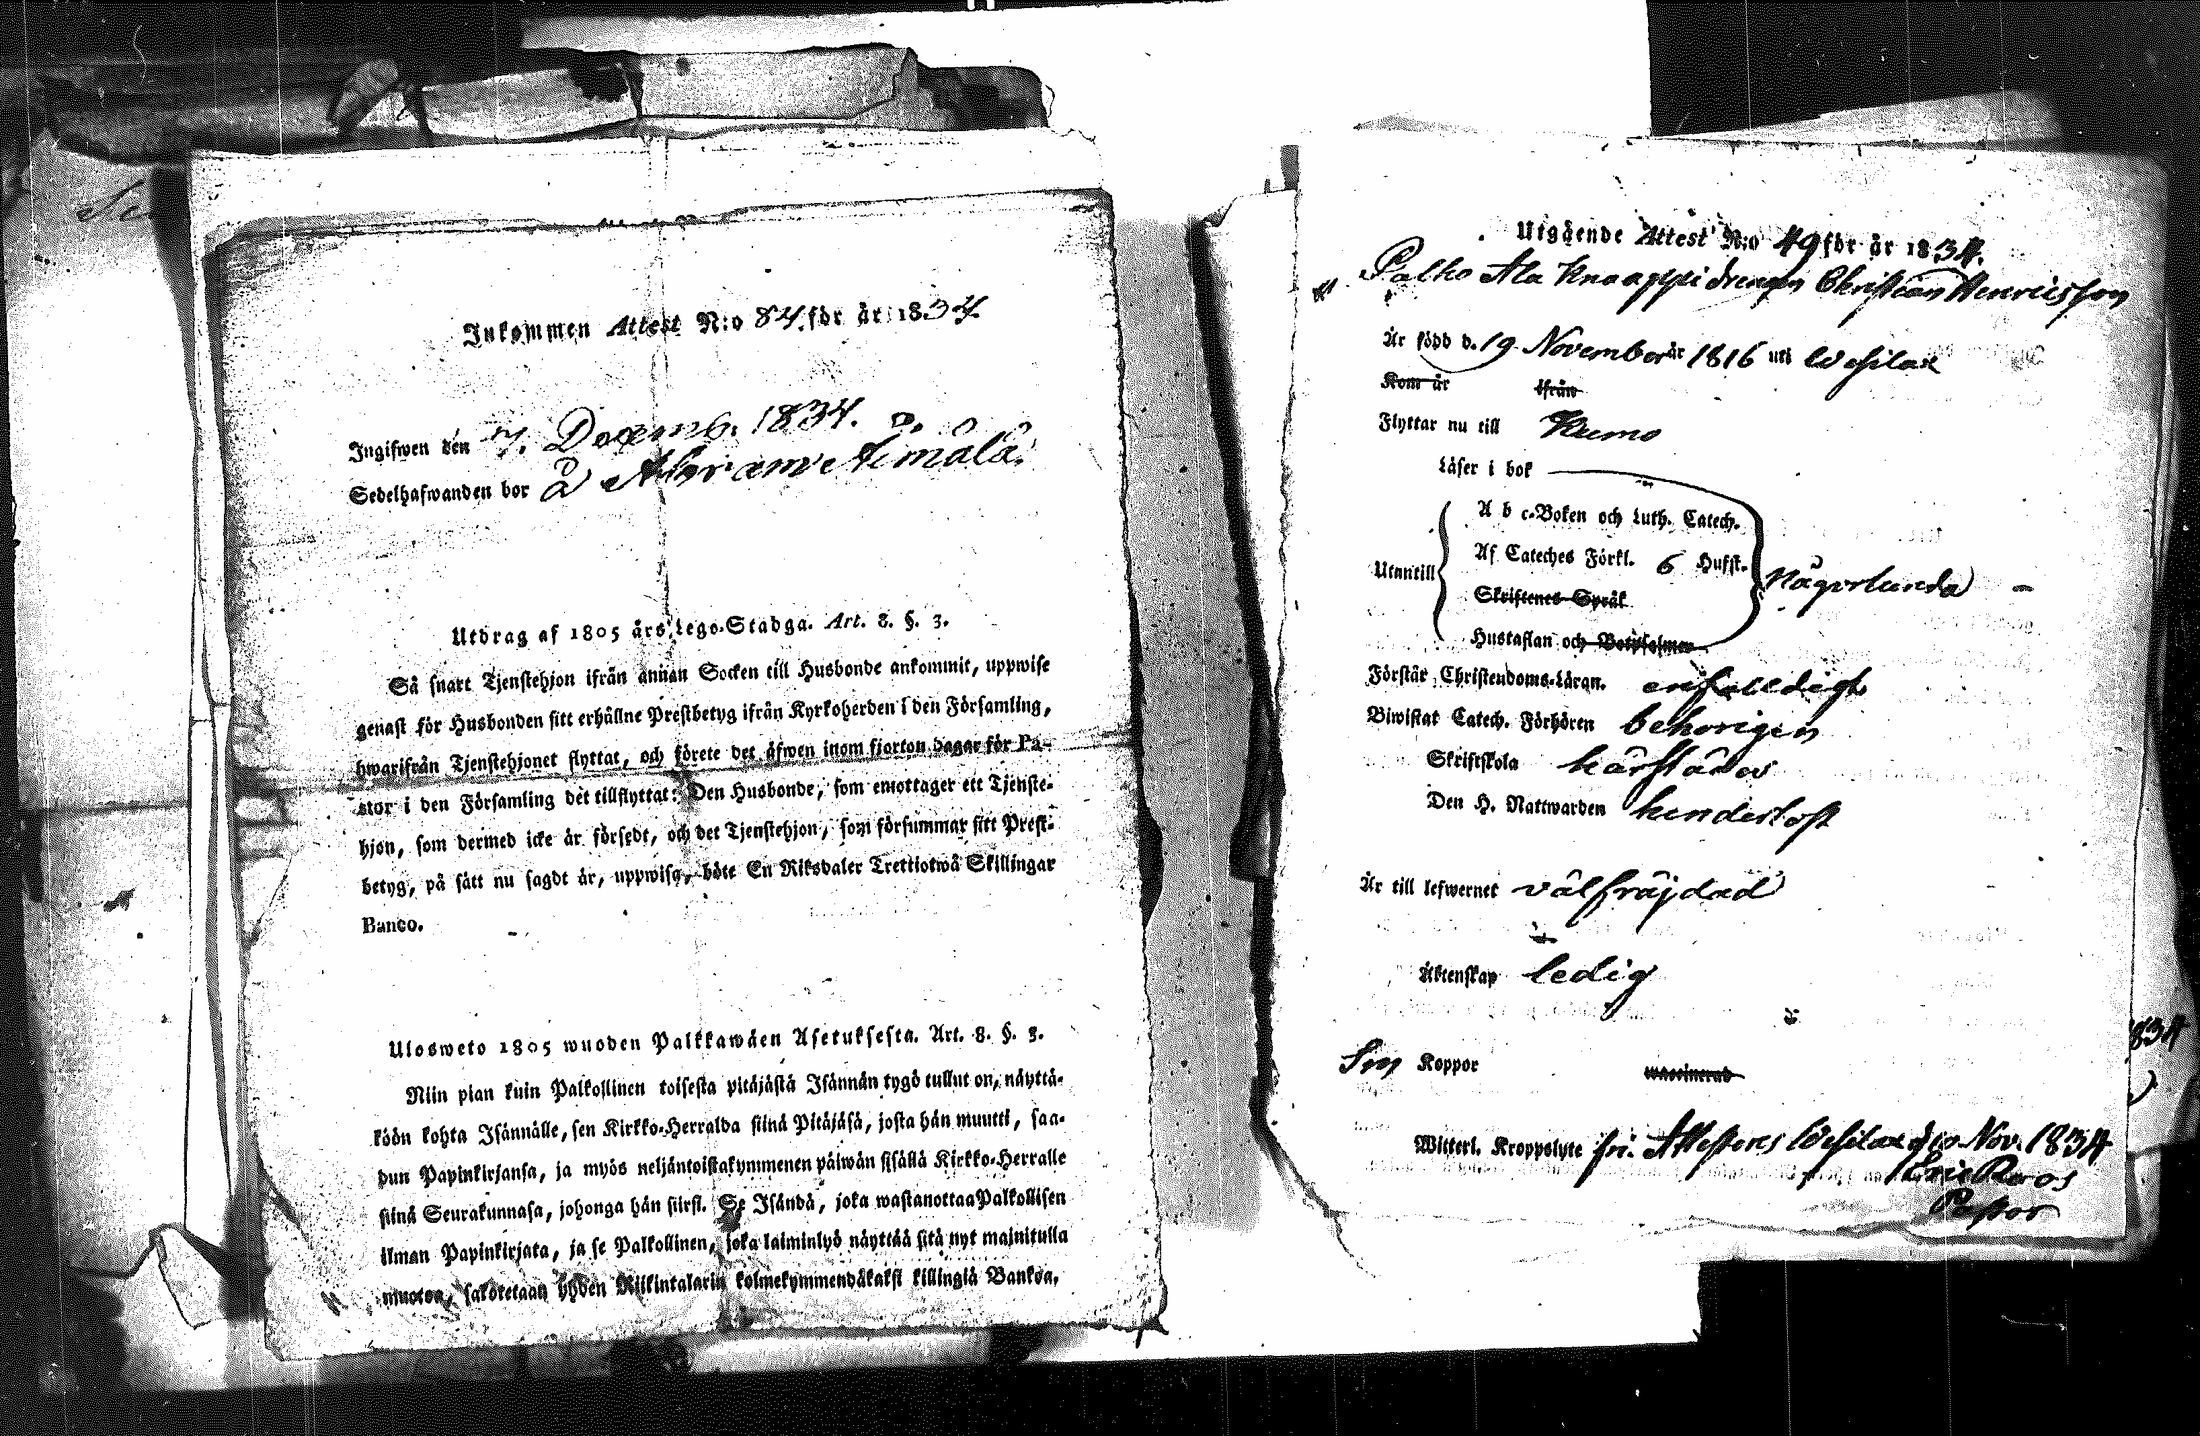 Inkommen Attest N:o 84. för år 1834.
Ingifwen den 7. Decemb. 1834.
Sedelhafwanden bor å Abram Äimälä.
Utdrag af 1805 års Lego-Stadga. Art. 8. §. 3.
Så snart Tjenstehjon ifrån annan Socken till Husbonde ankommit, uppwise
genast för Husbonden sitt erhållne Prestbetyg ifrån Kyrkoherden i den Församling,
hwarifrån Tjenstehjonet flyttat, och förete det äfwen inom fjorton dagar för Pa-
stor i den Församling det tillflyttat: Den Husbonde, som emottager ett Tjenste-
hjon, som dermed icke är försedt, och det Tjenstehjon, som försummar sitt Prest-
betyg, på sätt nu sagdt är, uppwisa, böte En Riksdaler Trettiotwå Skillingar
Banco.
Ulosweto 1805 wuoden Palkkawäen Asetuksesta. Art. 8. §. 3.
Niin pian kuin Palkollinen toisesta pitäjästä Isännän tygö tullut on, näyttä-
köön kohta Isännälle, sen Kirkko-Herralda siinä Pitäjäsä, josta hän muutti, saa-
dun Papinkirjansa, ja myös neljäntoistakymmenen päiwän sisällä Kirkko-Herralle
siinä Seurakunnasa, johonga hän siirsi. Se Isändä, joka wastanottaa Palkollisen
ilman Papinkirjata, ja se Palkollinen, joka laiminlyö näyttää sitä nyt mainitulla
muotoa, sakotetaan yhden Riikintalarin kolmekymmendäkaksi killingiä Bankoa.
Utgående Attest N:o 49 för år 1834.
Palho Ala Knaappi drengen Christian Henricsson
Är född d. 19 November år 1816 uti Wesilax
Kom år ifrån
Flyttar nu till Kumo
Läser i bok
A b c-Boken och Luth. Catech.
Af Cateches Förkl. 6 Hufst.
Utantill någorlunda
Skriftenes Språk
Hustaflan och Botpsalmen
Förstår Christendoms-Läran. enfaldigt
Biwistat Catech. Förhören behörigen
Skriftskola härstädes
Den H. Nattwarden hinderlöst
Är till lefwernet välfräjdad
Äktenskap ledig
Koppor waccinerad
Witterl. Kroppslyte fri. Attesteras Wesilax d 10 Nov. 1834
Eric Roos
Pastor
834